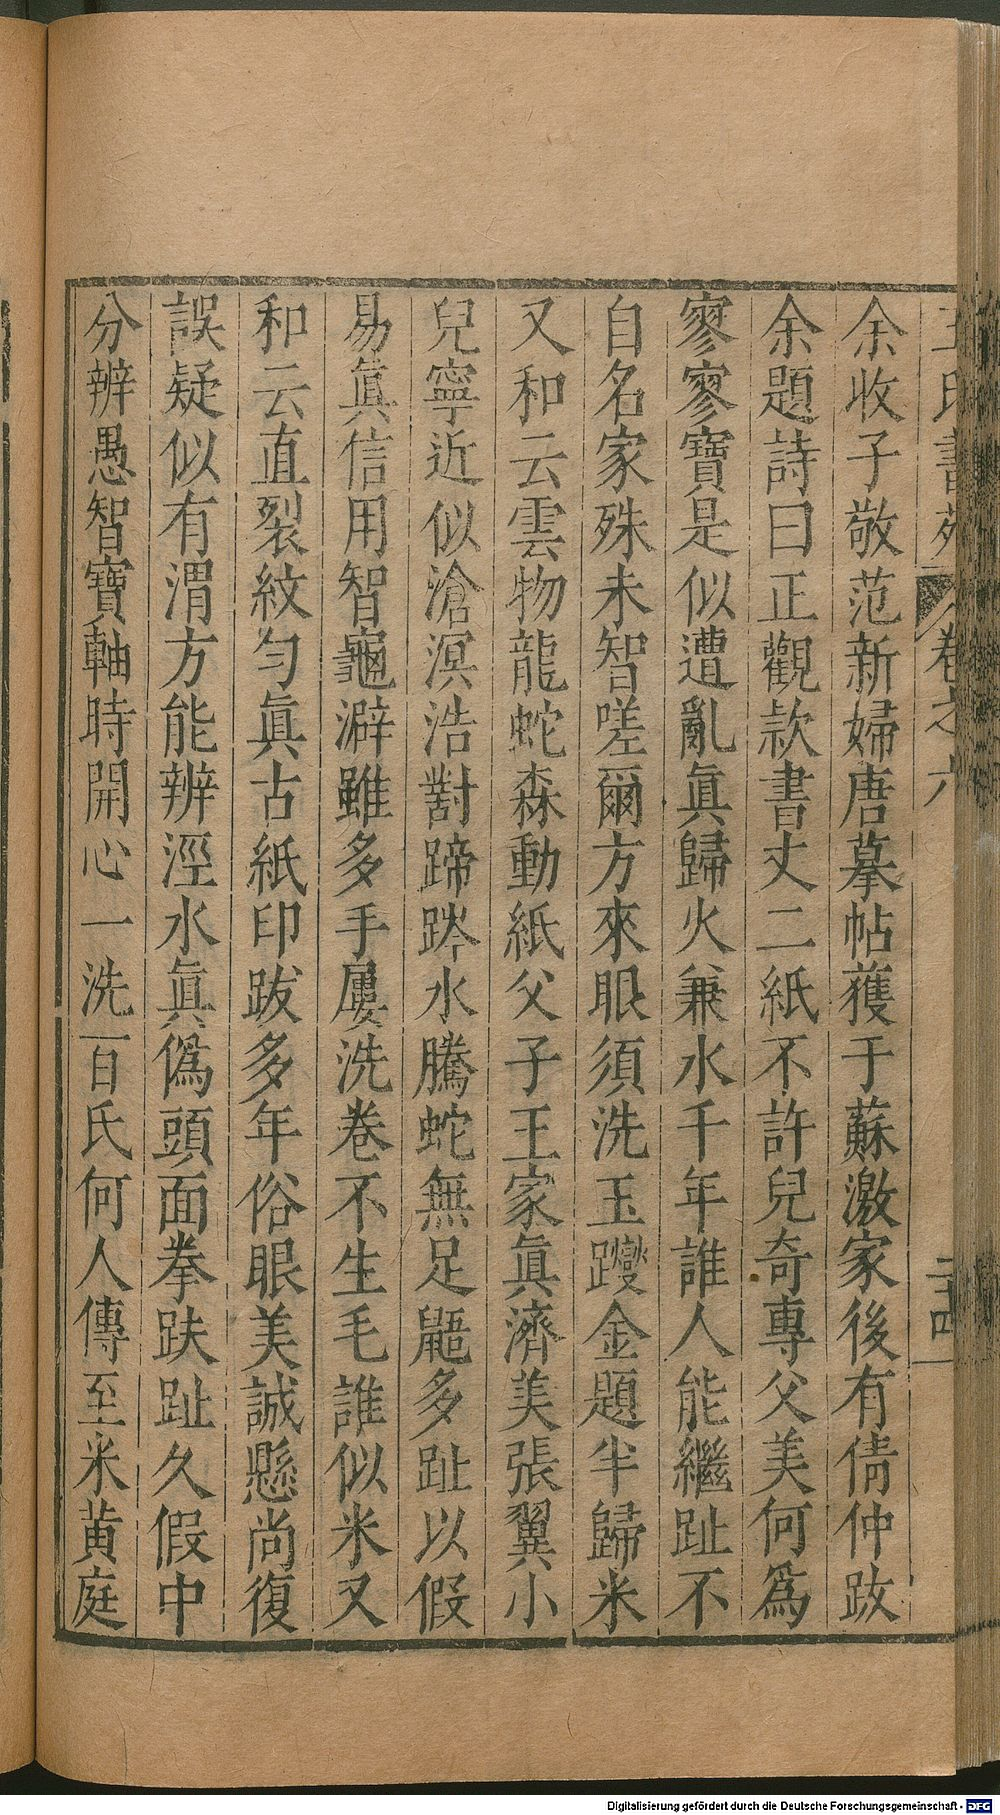 王氏書苑 卷之六 二十四
余收子敬范新婦唐摹帖獲于蘇激家後有倩仲跋
余題詩曰正觀款書丈二紙不許兒奇專父美何爲
寥寥寶是似遭亂眞歸火兼水千年誰人能繼趾不
自名家殊未智嗟爾方來眼須洗玉躞金題半歸米
又和云雲物龍蛇森動紙父子王家眞濟美張翼小
兒寧近似滄溟浩對蹄踤水騰蛇無足鼯多趾以假
易眞信用智龜澼雖多手屢洗卷不生毛誰似米又
和云直裂紋勻眞古紙印跋多年俗眼美誠懸尚復
誤疑似有渭方能辨涇水眞僞頭面拳趺趾久假中
分辨愚智寶軸時開心一洗百氏何人傳至米黄庭
Digitalisierung gefördert durch die Deutsche Forschungsgemeinschaft - DFG